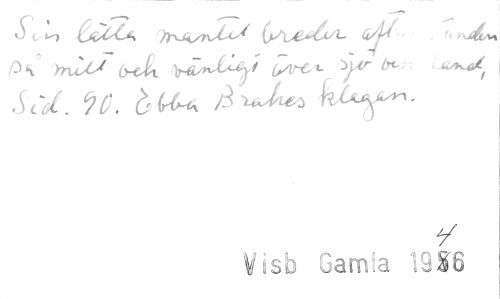 Sin lätta mantel breder aftonstunden
så milt och vänligt över sjö och land,
Sid. 90. Ebba Brahes klagan.
4
Visb Gamla 1956